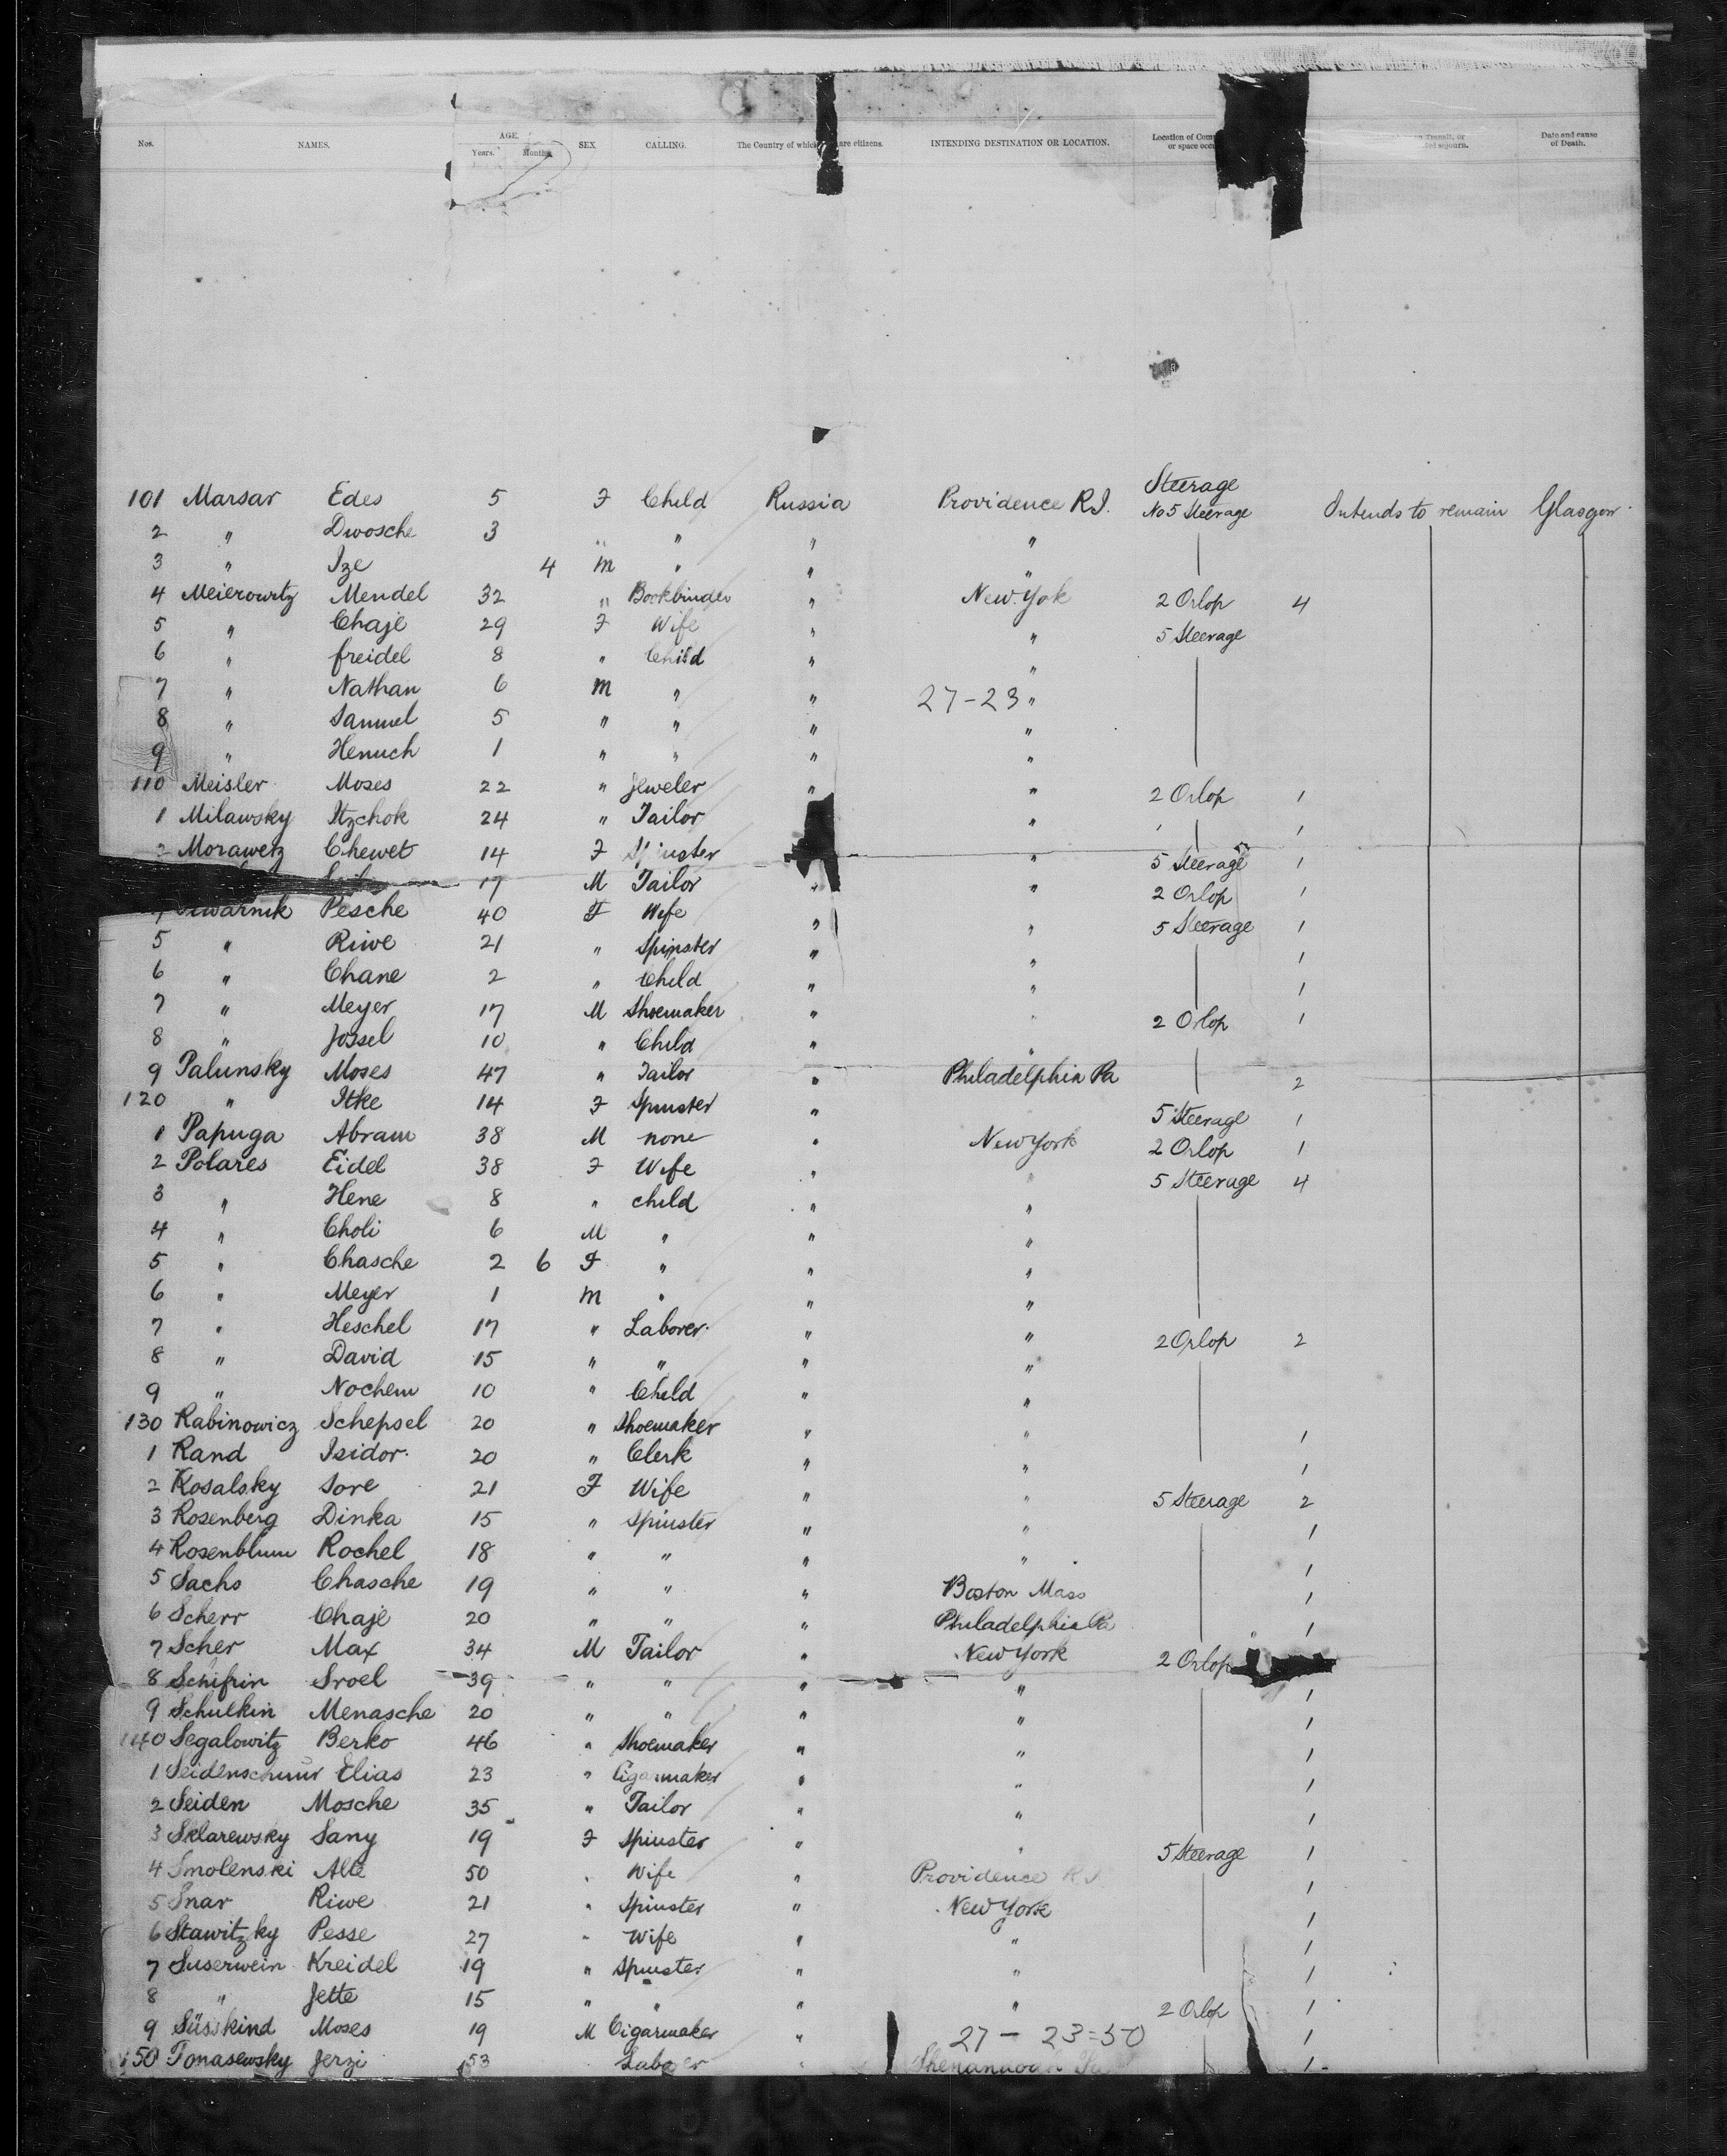 Nos. NAMES. AGE. Years. Months. SEX CALLING. The Country of which are citizens. INTENDING DESTINATION OR LOCATION. Location of Com or space occu Transit, or sojourn. Date and cause of Death.
Steerage
101 Marsar Edes 5 F Child Russia Providence R.I. No 5 Steerage Intends to remain Glasgow
2 " Dwosche 3 " " " "
3 " Ize 4 M " " "
4 Meierowitz Mendel 32 " Bookbinder " New York 2 Orlop 4
5 " Chaje 29 F Wife " " 5 Steerage
6 " Freidel 8 " Child " "
7 " Nathan 6 M " " 27-23 "
8 " Samuel 5 " " " "
9 " Henuch 1 " " " "
110 Meisler Moses 22 " Jeweler " " 2 Orlop 1
1 Milawsky Itzchok 24 " Tailor " 1
2 Morawetz Chewet 14 F Spinster " 5 Steerage 1
17 M Tailor " " 2 Orlop 1
Pesche 40 F Wife " " 5 Steerage 1
5 " Riwe 21 " Spinster " " 1
6 " Chane 2 " Child " " 1
7 " Meyer 17 M Shoemaker " " 2 Orlop 1
8 " Jossel 10 " Child " "
9 Palunsky Moses 47 " Tailor " Philadelphia Pa 2
120 " Itke 14 F Spinster " 5 Steerage 1
1 Papuga Abram 38 M none " New York 2 Orlop 1
2 Polares Eidel 38 F Wife " " 5 Steerage 4
3 " Hene 8 " child " "
4 " Choli 6 M " " "
5 " Chasche 2 6 F " " "
6 " Meyer 1 M " " "
7 " Heschel 17 " Laborer " " 2 Orlop 2
8 " David 15 " " " "
9 " Nochem 10 " Child " "
130 Rabinowicz Schepsel 20 " Shoemaker " " 1
1 Rand Isidor 20 " Clerk " " 1
2 Kosalsky Sore 21 F Wife " " 5 Steerage 2
3 Rosenberg Dinka 15 " Spinster " " 1
4 Rosenblum Rochel 18 " " " " 1
5 Sachs Chasche 19 " " " Boston Mass 1
6 Scherr Chaje 20 " " " Philadelphia Pa 1
7 Scher Max 34 M Tailor " New York 2 Orlop
8 Schifrin Sroel 39 " " " " 1
9 Schulkin Menasche 20 " " " " 1
140 Segalowitz Berko 46 " Shoemaker " " 1
1 Seidenschnur Elias 23 " Cigarmaker " " 1
2 Seiden Mosche 35 " Tailor " " 1
3 Sklarewsky Sany 19 F Spinster " " 5 Steerage 1
4 Smolenski Alte 50 " Wife " Providence R.I. 1
5 Snar Riwe 21 " Spinster " New York 1
6 Stawitzky Pesse 27 " Wife " " 1
7 Suserwein Kreidel 19 " Spinster " " 1
8 " Jette 15 " " " " 2 Orlop 1
9 Süsskind Moses 19 M Cigarmaker " 27 - 23=50 1
150 Tomasewsky Jerzi 53 Laborer " Shenandoah Pa 1